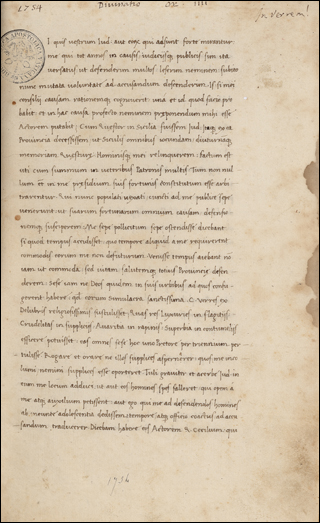 1754
Diuinatio
In Verrem
I quis uestrum Iud: aut eorum qui adsunt forte miratur
me qui tot annos in causis iudiciisque publicis sim ita
uersatus ut defenderim multos leserim neminem subito
nunc mutata uoluntate ad accusandum descenderem: Is si mei
consilij causam rationemque cognouerit: una et id quod facio pro
babit: et in hac causa profecto neminem preponendum mihi esse
Actorem putabit: Cum Questor in Sicilia fuissem Iud: itaque ex ea
Prouincia decessissem: ut Siculis omnibus iocundam diuturnamque
memoriam Questure Nominisque mei relinquerem: factum est
uti cum summum in ueteribus Patronis multis: Tum non nul
lum et in me presidium suis fortunis constitutum esse arbi
trarentur.
cuncti ad me publice sepe
uenerunt: ut suarum fortunarum omnium causam defensio
nemque susciperem: Me sepe pollicitum: sepe ostendisse dicebant:
si quod tempus accidisset: quo tempore aliquid a me requirerent
commodis eorum me non defuturum: Venisse tempus aiebant: no
iam ut commoda: sed uitam salutemque totius Prouincie defen
derem: Sese iam ne Deos quidem in suis urbibus ad quos confu
gerent habere: quod eorum simulacra sanctissima C. Verres ex
Delubris religiosissimis sustulisset:
res Luxuries in flagitiis
Crudelitas in suppliciis Auaritia in rapinis: Superbia in contumeliis
efficere potuisset: eas omnes sese hoc uno Pretore per triennium per
tulisse: Rogare et orare ne illos supplices aspernarer: quos me inco
lumi nemini supplices esse oporteret: Tuli grauiter et acerbe Iud: in
eum me locum adductum: ut aut eos homines spes falleret: qui opem a
me atque auxilium petissent: aut ego qui me ad defendendos homines
ab ineunte adolescentia dedissem: tempore atque officio coactus ad accu
sandum traducerer: Dicebam habere eos Actorem Q. Cecilium: qui
1736